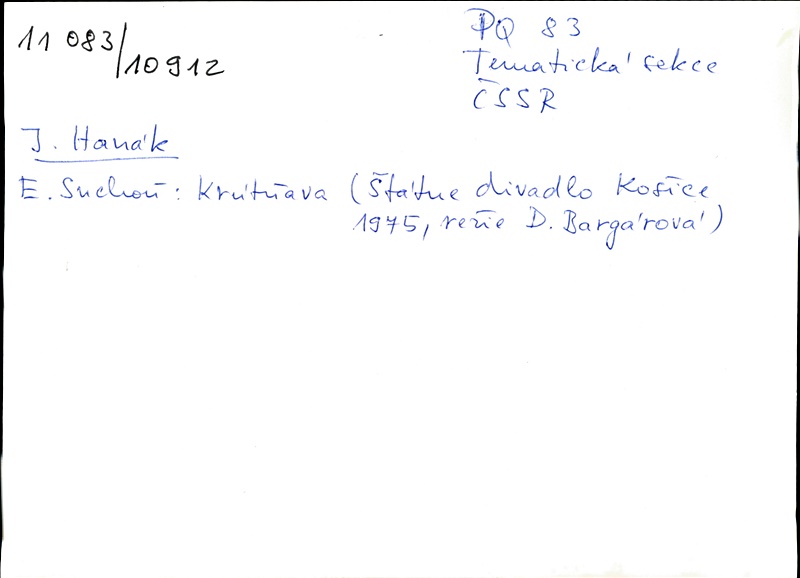 11 083/10912
PQ 83
Tematická sekce
ČSSR
J. Hanák
E. Suchoň: Krútňava (Štátne divadlo Košice
1975, režie D. Bargárová)